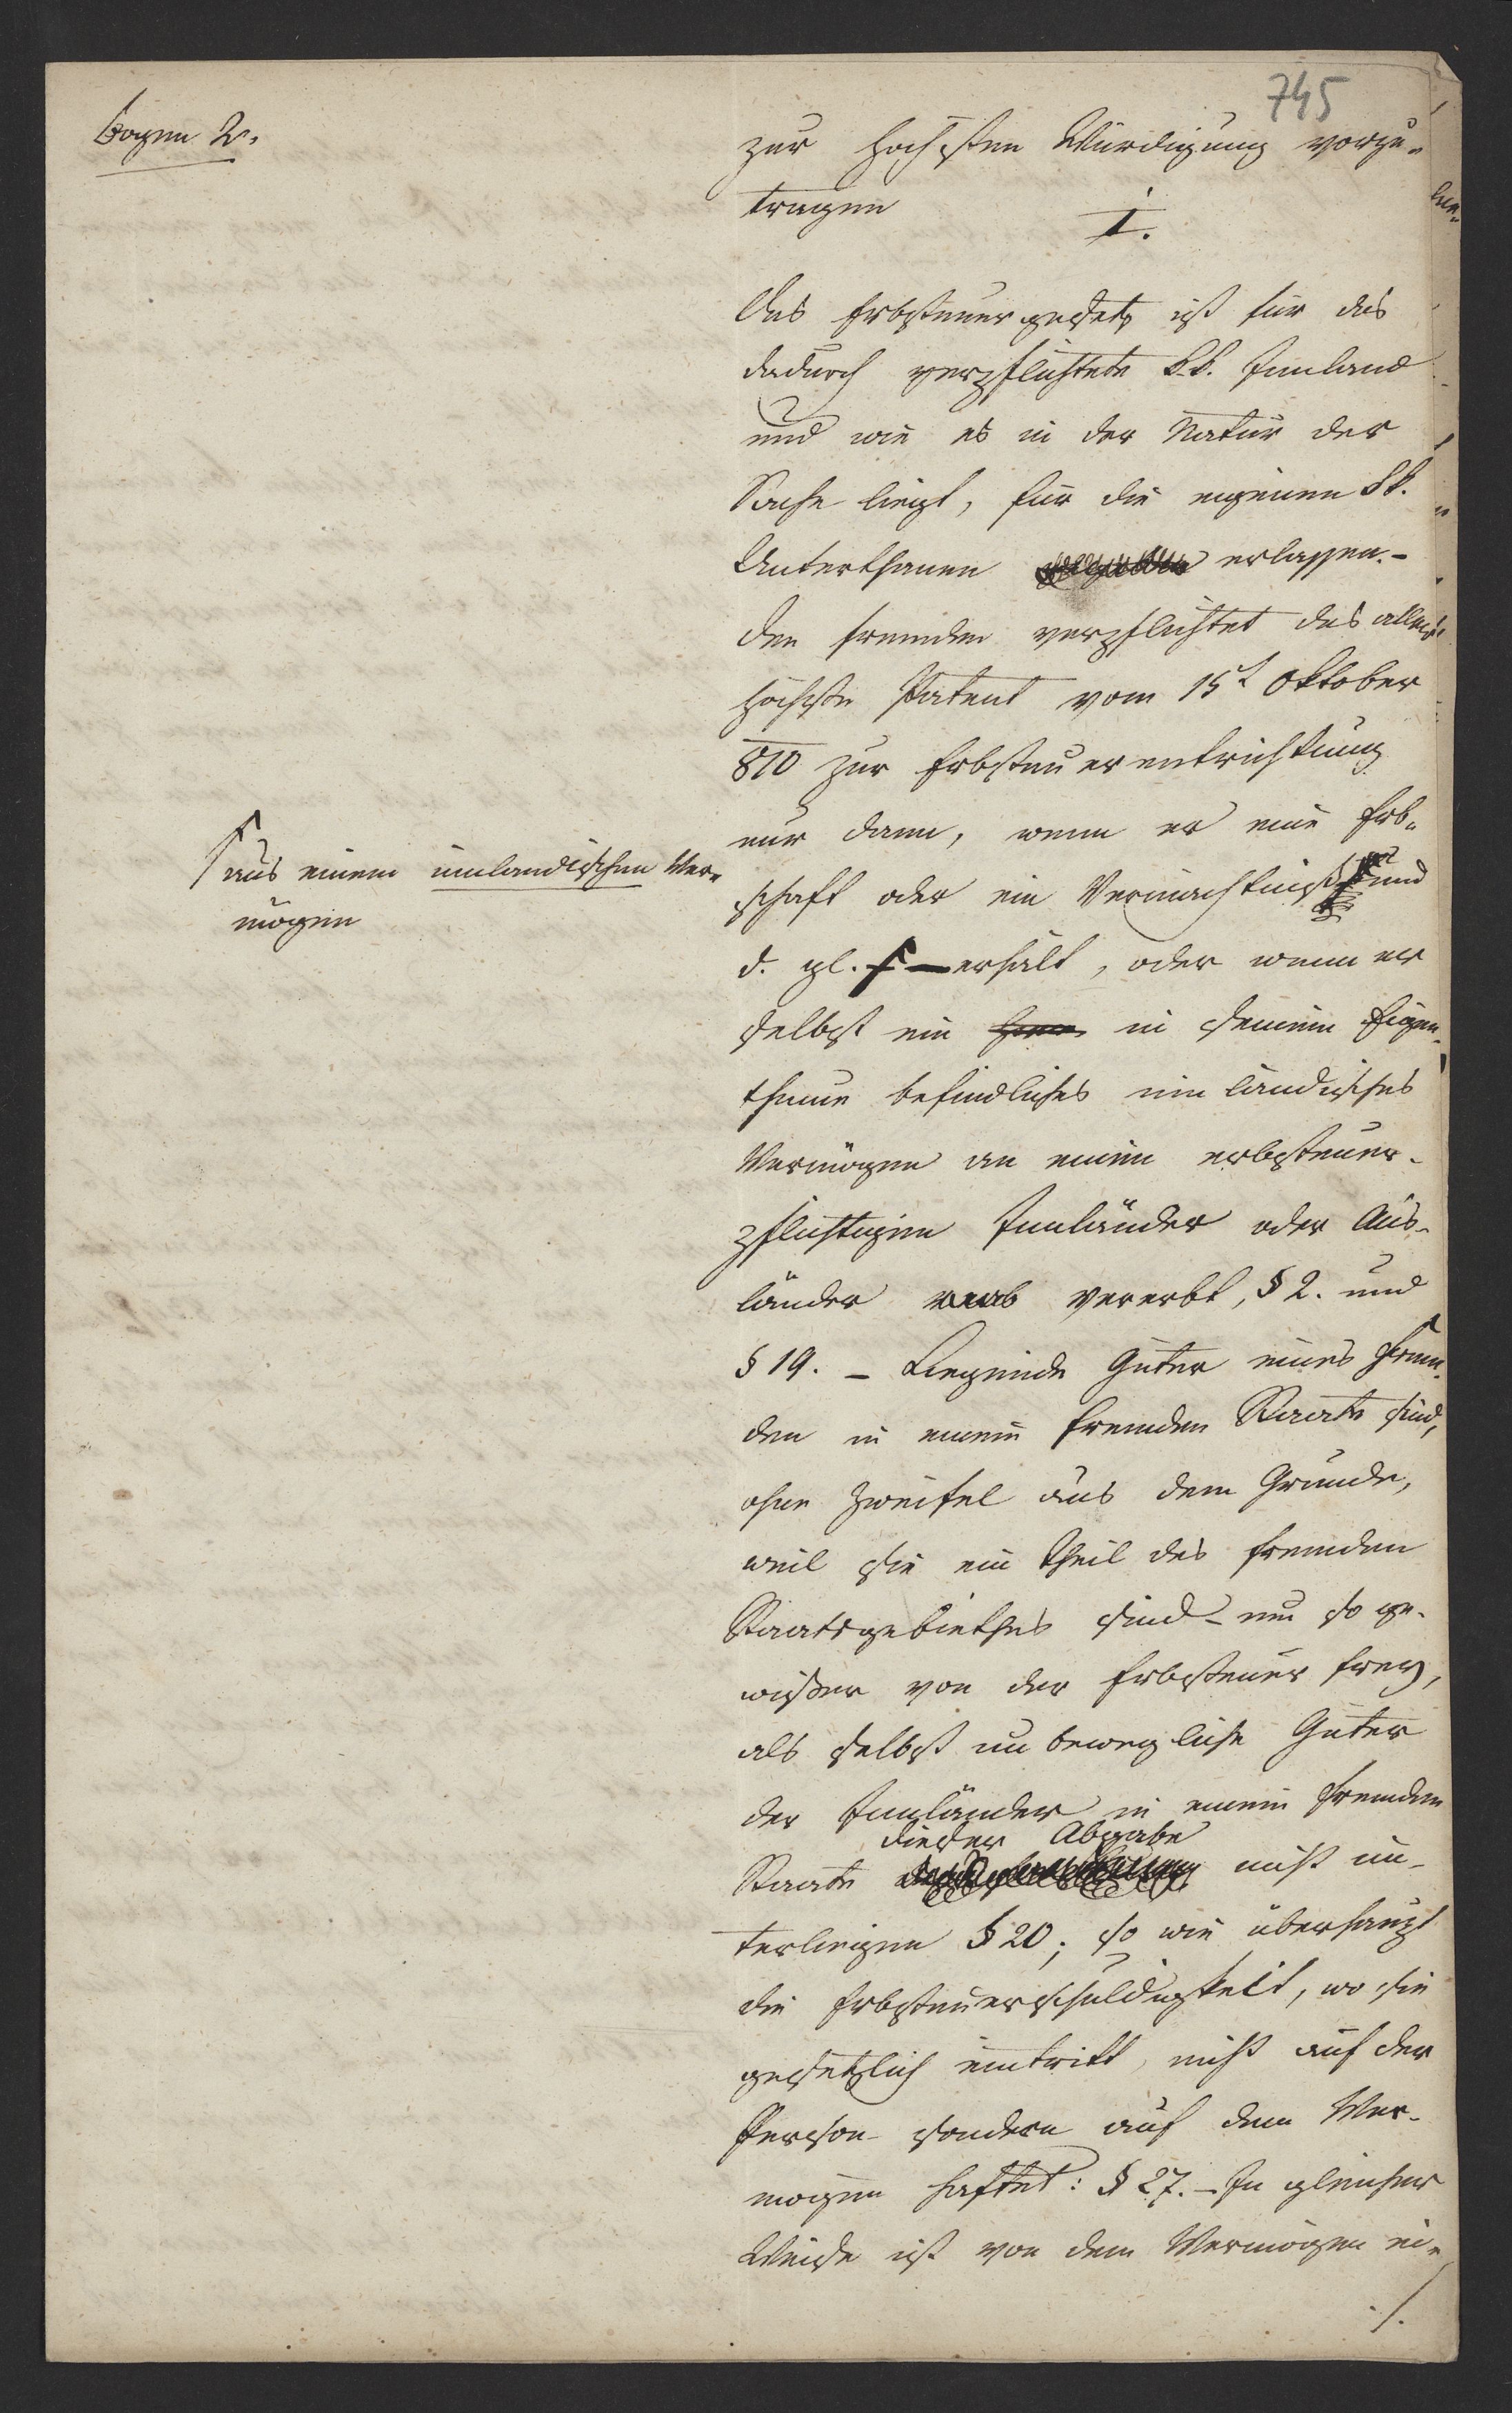 745
Bogen 2.
zur höchsten Würdigung vorzu-
tragen
I.
Das Erbsteuergesetz ist für das
dadurch verpflichtete k.k. Innland
und wie es in der Natur der
Sache liegt, für die eigenen kk.
Unterthanen erlassen. -
Den fremden verpflichtet das aller-
höchste Patent vom 15t Oktober
810 zur Erbsteuerentrichtung
nur dann, wenn er eine Erb-
schaft oder ein Vermächtniß und
d. gl. erhält, oder wenn er
aus einem innländischen Ver-
mögen
selbst ein in seinem Eigen-
thume befindliches innländisches
Vermögen an einen erbsteuer-
pflichtigen Innländer oder Aus-
länder vererbt, § 2. und
§ 19. - Liegende Güter eines Frem-
den in einem fremden Staate sind,
ohne Zweifel aus dem Grunde,
weil sie ein Theil des fremden
Staatsgebiethes sind - um so ge-
wißer von der Erbsteuer frey,
als selbst unbewegliche Güter
der Innländer in einem fremden
Staate dieser Abgabe nicht un-
terliegen § 20; so wie überhaupt
die Erbsteuerschuldigkeit, wo sie
gesetzlich eintritt, nicht auf der
Person sondern auf dem Ver-
mögen haftet: § 27. - In gleicher
Weise ist von dem Vermögen ei-
./.